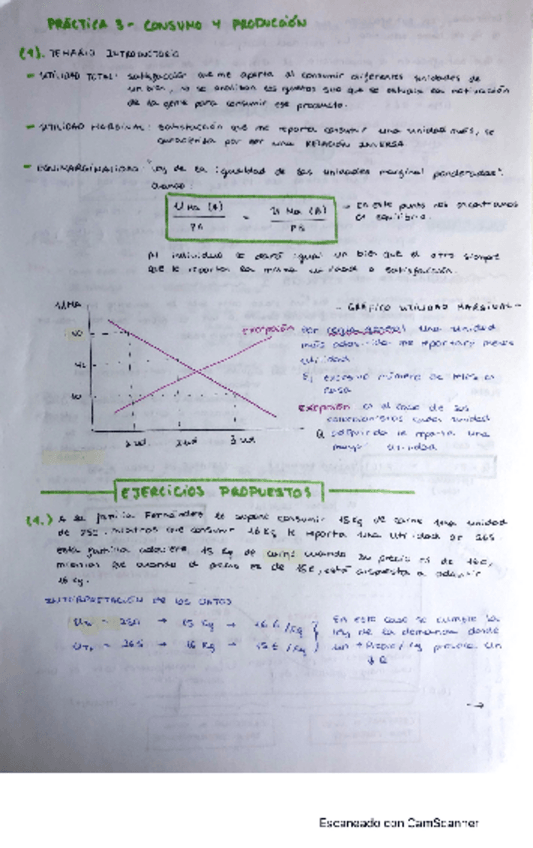 PRÁCTICA 3 - CONSUMO Y PRODUCCIÓN
(1). TEMARIO INTRODUCTORIO
- UTILIDAD TOTAL: satisfacción que me aporta al consumir diferentes unidades de
un bien, no se analizan los gustos sino que se estudia la motivación
de la gente para consumir ese producto.
- UTILIDAD MARGINAL: satisfacción que me reporta consumir una unidad más, se
caracteriza por ser una RELACIÓN INVERSA
- EQUIMARGINALIDAD: "Ley de la igualdad de las unidades marginal ponderadas".
cuando:
U Ma (A) = U Ma (B)
PA PB
→ En este punto nos encontramos
en equilibrio.
Al individuo le dará igual un bien que el otro siempre
que le reporten la misma utilidad o satisfacción.
UMA
- GRÁFICO UTILIDAD MARGINAL -
excepción
una unidad
más adquirida me reportará menos
utilidad
Ej excesivo número de
casa
excepción es el caso de los
coleccionistas cada unidad
Q adquirida le reporta una
mayor utilidad
1 ud. 2 ud 3 ud
EJERCICIOS PROPUESTOS
(1.) A la familia Fernández le supone consumir 15 Kg de carne una unidad
de 250, mientras que consumir 16 Kg le reporta una utilidad de 265
esta familia adquiere 15 Kg de carne cuando su precio es de 16€,
mientras que cuando el precio es de 15€, está dispuesta a adquirir
16 Kg.
INTERPRETACIÓN DE LOS DATOS
250 → 15 Kg → 16 €/Kg
265 → 16 Kg → 15 €/Kg
En este caso se cumple la
ley de la demanda donde
un ↑ provoca un
↓ Q
→
Escaneado con CamScanner